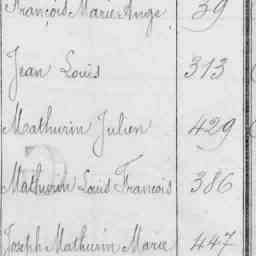 François Marie Ange 39
Jean Louis 313
Mathurin Julien 429
Mathurin Louis François 386
Joseph Mathurin Marie 447